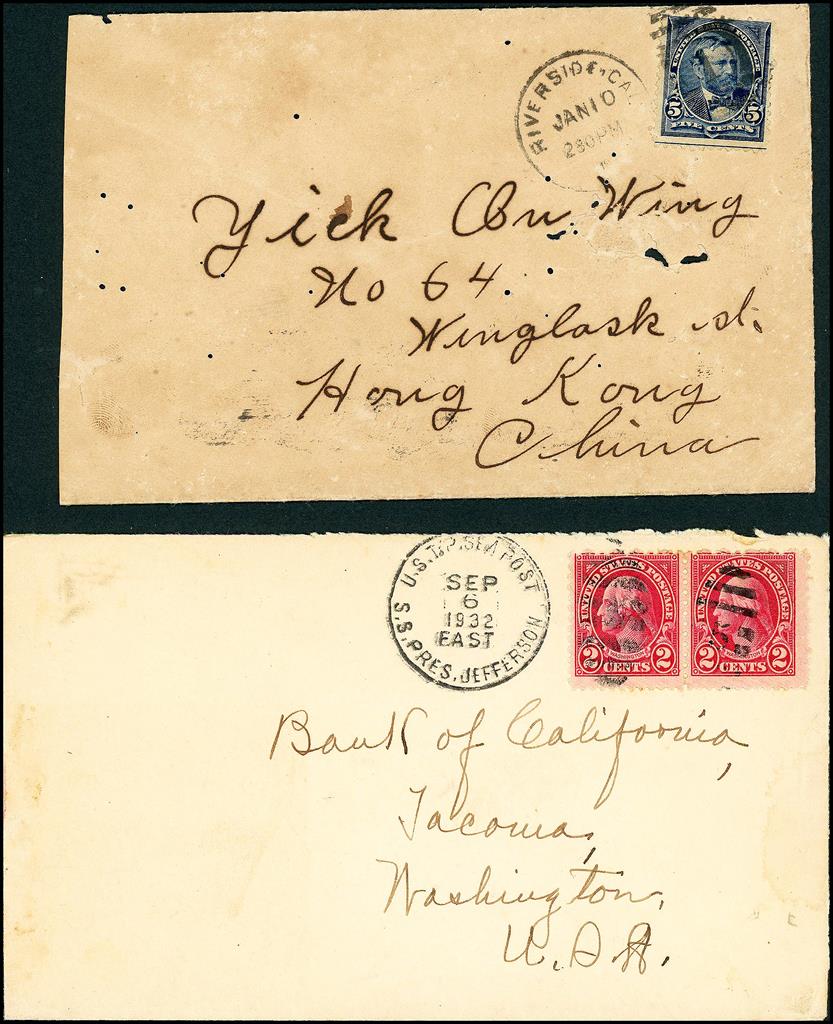 RIVERSIDE, CA
JAN 10
230 PM
UNITED STATES POSTAGE
5 5
FIVE CENTS
Yick On Wing
No 64
Winglask st.
Hong Kong
China
U.S.T.P. SEA POST
SEP
6
1932
EAST
S.S. PRES. JEFFERSON
UNITED STATES POSTAGE
WASHINGTON
2 CENTS 2
STATES POSTAGE
2 CENTS 2
Bank of California,
Tacoma,
Washington,
U.S.A.